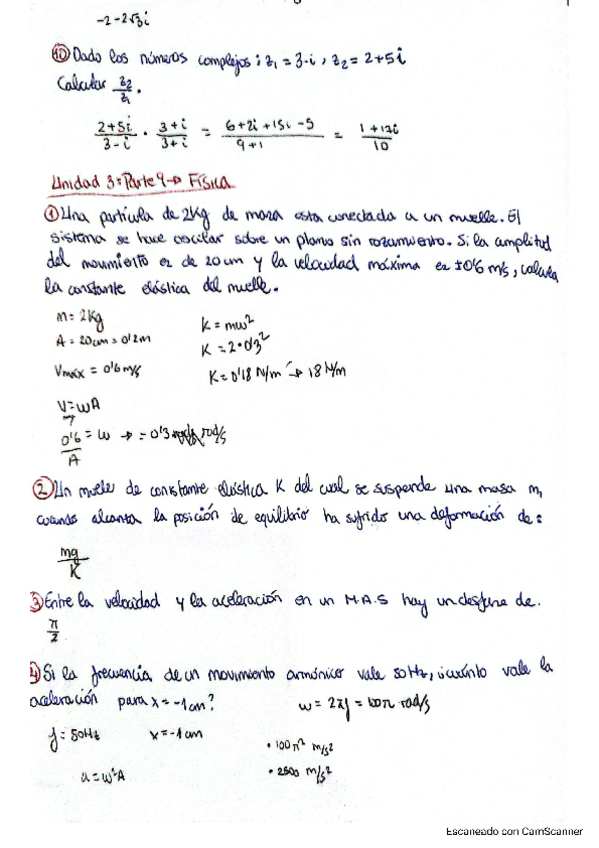 -2-2√3i
⑩ Dado los números complejos: z₁ = 3-i, z₂ = 2+5i
Calcular z₂/z₁.
(2+5i)/(3-i) · (3+i)/(3+i) = (6+2i+15i-5)/(9+1) = (1+17i)/10
Unidad 3: Parte 9 → FÍSICA
① Una partícula de 2Kg de masa esta conectada a un muelle. El
sistema se hace oscilar sobre un plano sin rozamiento. Si la amplitud
del movimiento es de 20 cm y la velocidad máxima es ±0'6 m/s, calcula
la constante elástica del muelle.
m = 2Kg
A = 20cm = 0'2m
Vmáx = 0'6 m/s
V = wA
0'6/A = w → = 0'3 rad/s
K = mw²
K = 2·0'3²
K = 0'18 N/m → 18 N/m
② Un muelle de constante elástica K del cual se suspende una masa m,
cuando alcanza la posición de equilibrio ha sufrido una deformación de:
mg/K
③ Entre la velocidad y la aceleración en un M.A.S hay un desfase de.
π/2
④ Si la frecuencia de un movimiento armónico vale 50Hz, ¿cuánto vale la
aceleración para x = -1 cm?
w = 2πf = 100π rad/s
f = 50Hz x = -1 cm
a = w²A
• 100π² m/s²
• 2500 m/s²
Escaneado con CamScanner